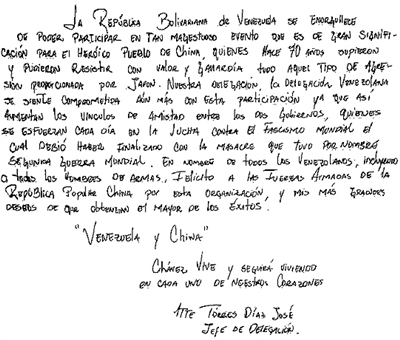 La República Bolivariana de Venezuela se enorgullece
de poder participar en tan magestuoso evento que es de gran signifi-
cación para el heróico pueblo de China, quienes hace 70 años supieron
y pudieron resistir con valor y gallardía todo aquel tipo de agre-
sión proporcionada por Japón. Nuestra delegación, la delegación Venezolana
se siente comprometida aún más con esta participación ya que así
aumentan los vínculos de amistad entre los dos gobiernos, quienes
se esfuerzan cada día en la lucha contra el fascismo mundial el
cual debió haber finalizado con la masacre que tuvo por nombre
Segunda Guerra Mundial. En nombre de todos los Venezolanos, incluyendo
a todos los hombres de armas, felicito a las Fuerzas Armadas de la
República Popular China por esta organización, y mis más grandes
deseos de que obtengan el mayor de los éxitos.
"Venezuela y China"
Chávez vive y seguirá viviendo
en cada uno de nuestros corazones
Atte Torres Díaz José
Jefe de Delegación.